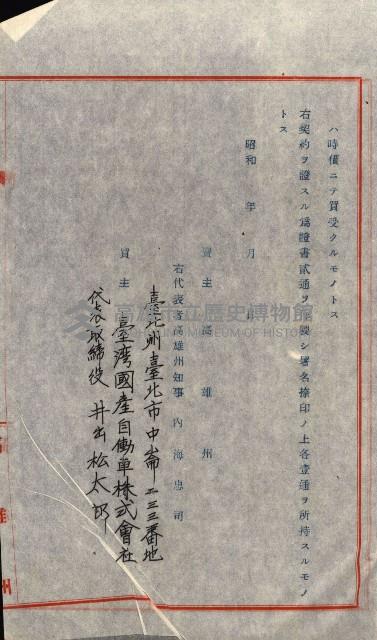 ハ時價ニテ買受クルモノトス
右契約ヲ證スル爲證書貳通ヲ製シ署名捺印ノ上各壹通ヲ所持スルモノ
トス
昭和 年 月 日
賣主 高雄州
右代表者高雄州知事 內海忠司
臺北州臺北市中崙二三三番地
買主 臺灣國產自働車株式會社
代表取締役 井出松太郎
高雄市立歷史博物館
雄
州